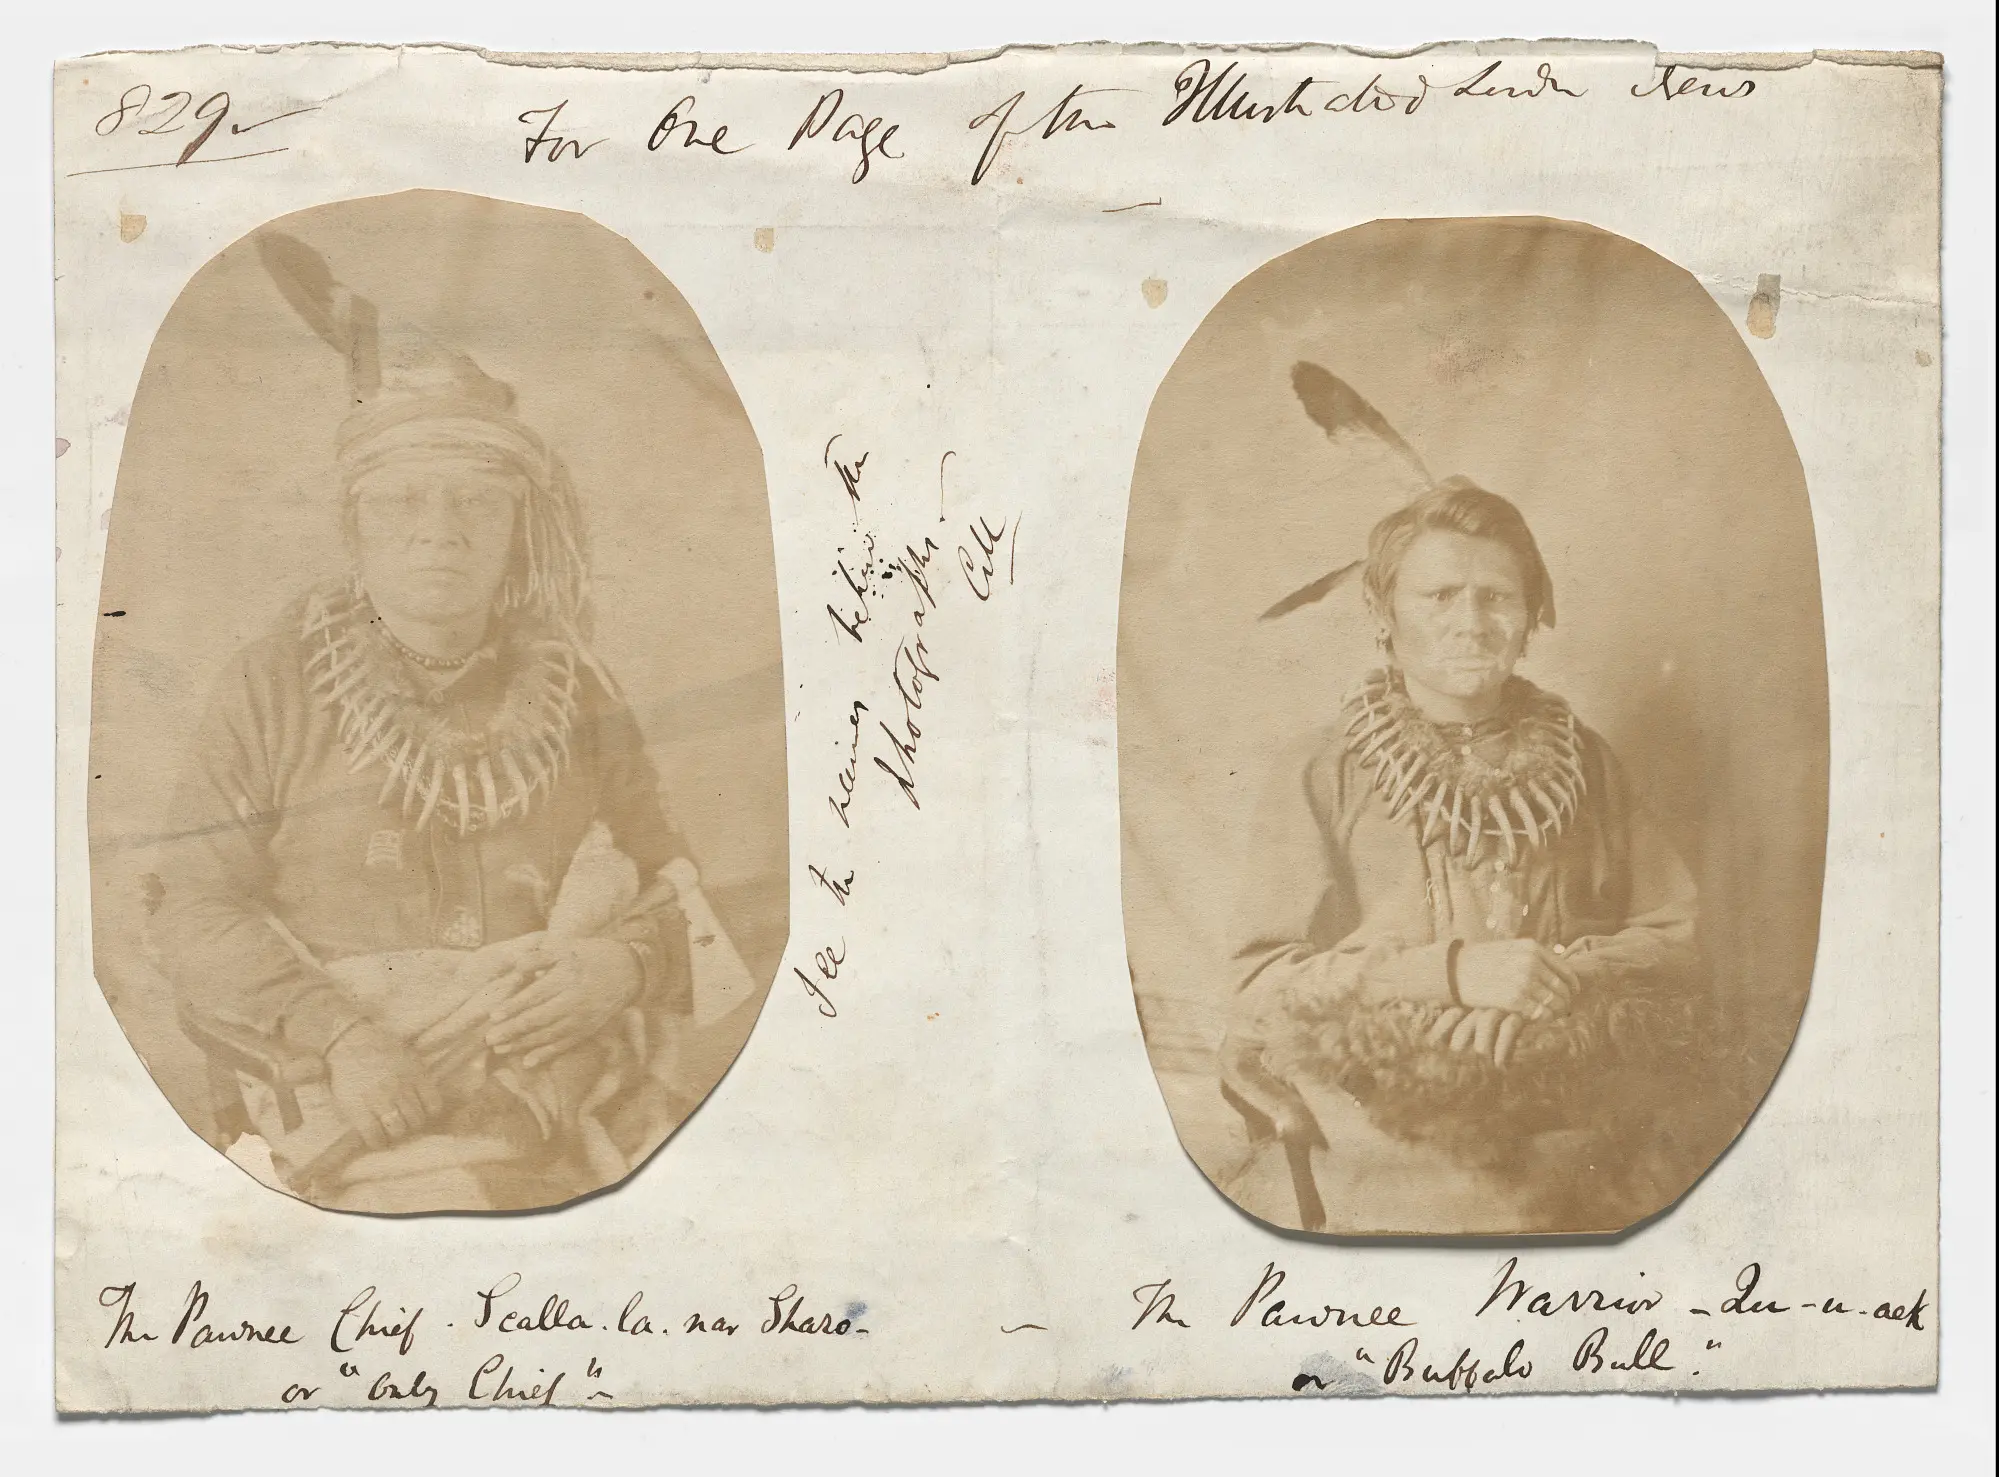 829
For One Page of the Illustrated London News
See the names behind the
photographs.
The Pawnee Chief - Scalla. la. nar Sharo -
or "Only Chief" -
The Pawnee Warrior - Qu - u - aek
or "Buffalo Bull."